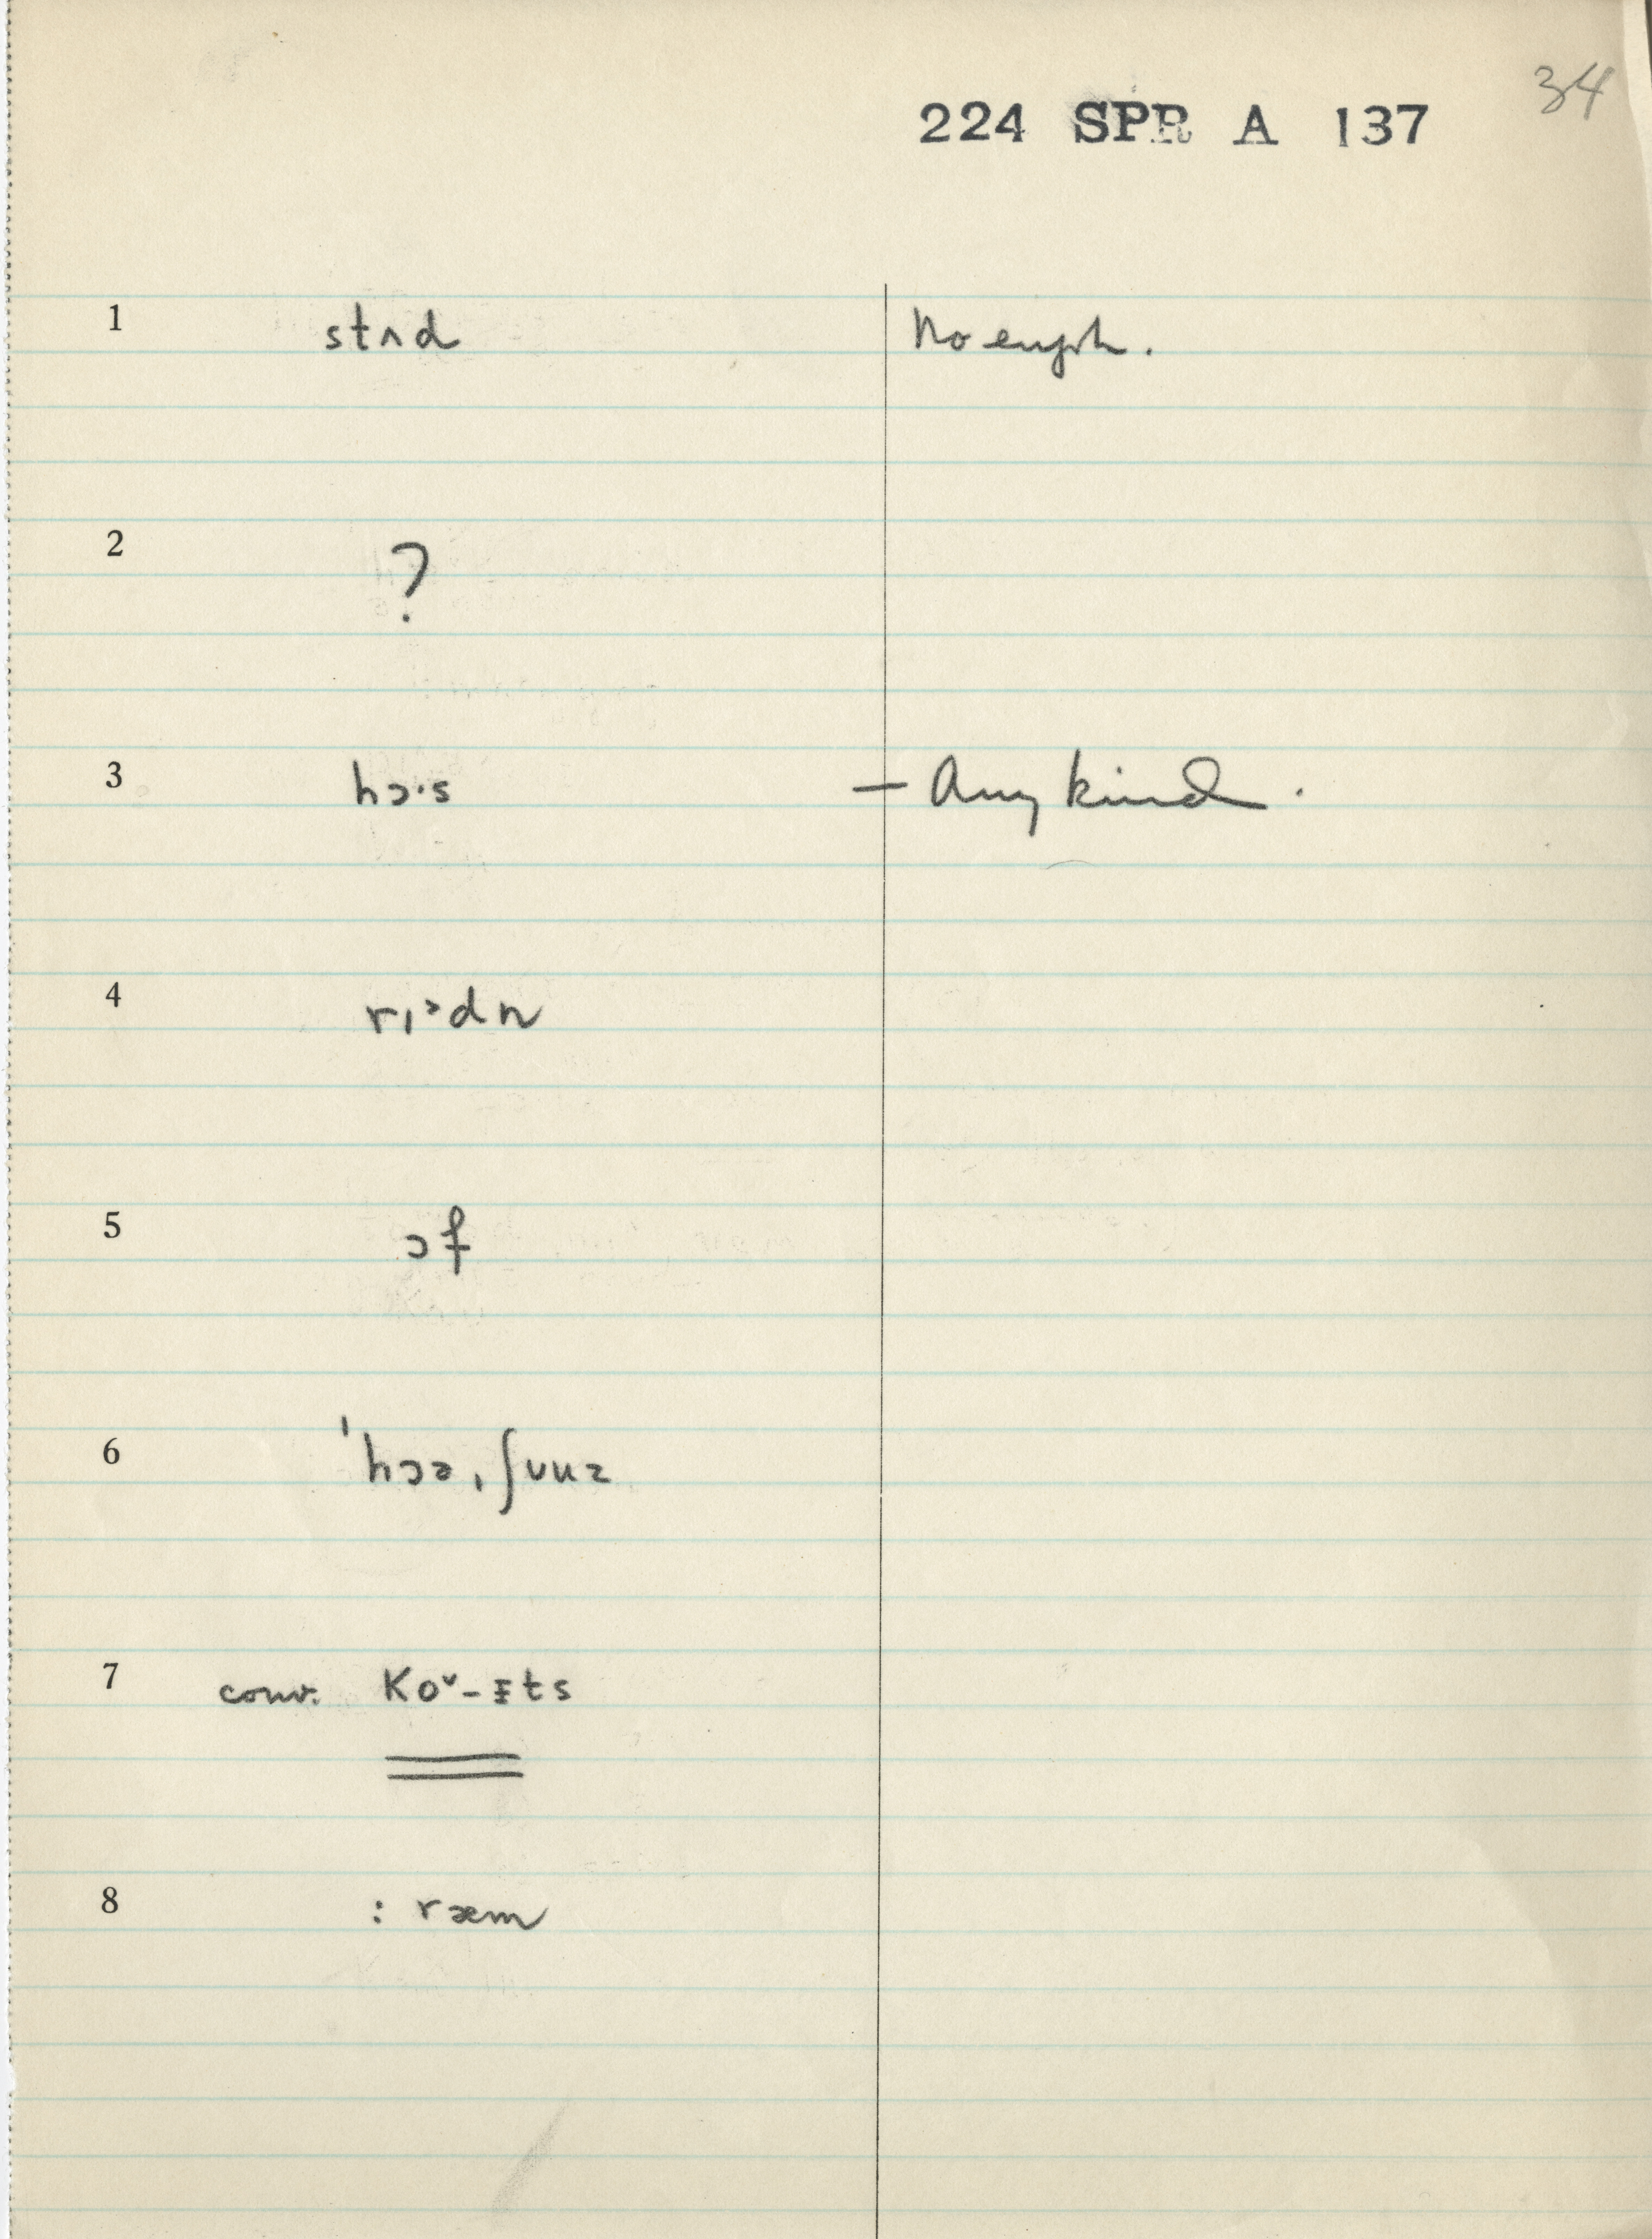 34
224 SPR A 137
1 stʌd No euph.
2 ?
3 hɔ·s – Any kind.
4 rɪᵊdn
5 ɔf
6 ˈhɔəˌʃuuz
7 conv. Koᵛ-ɪts
8 : ræm